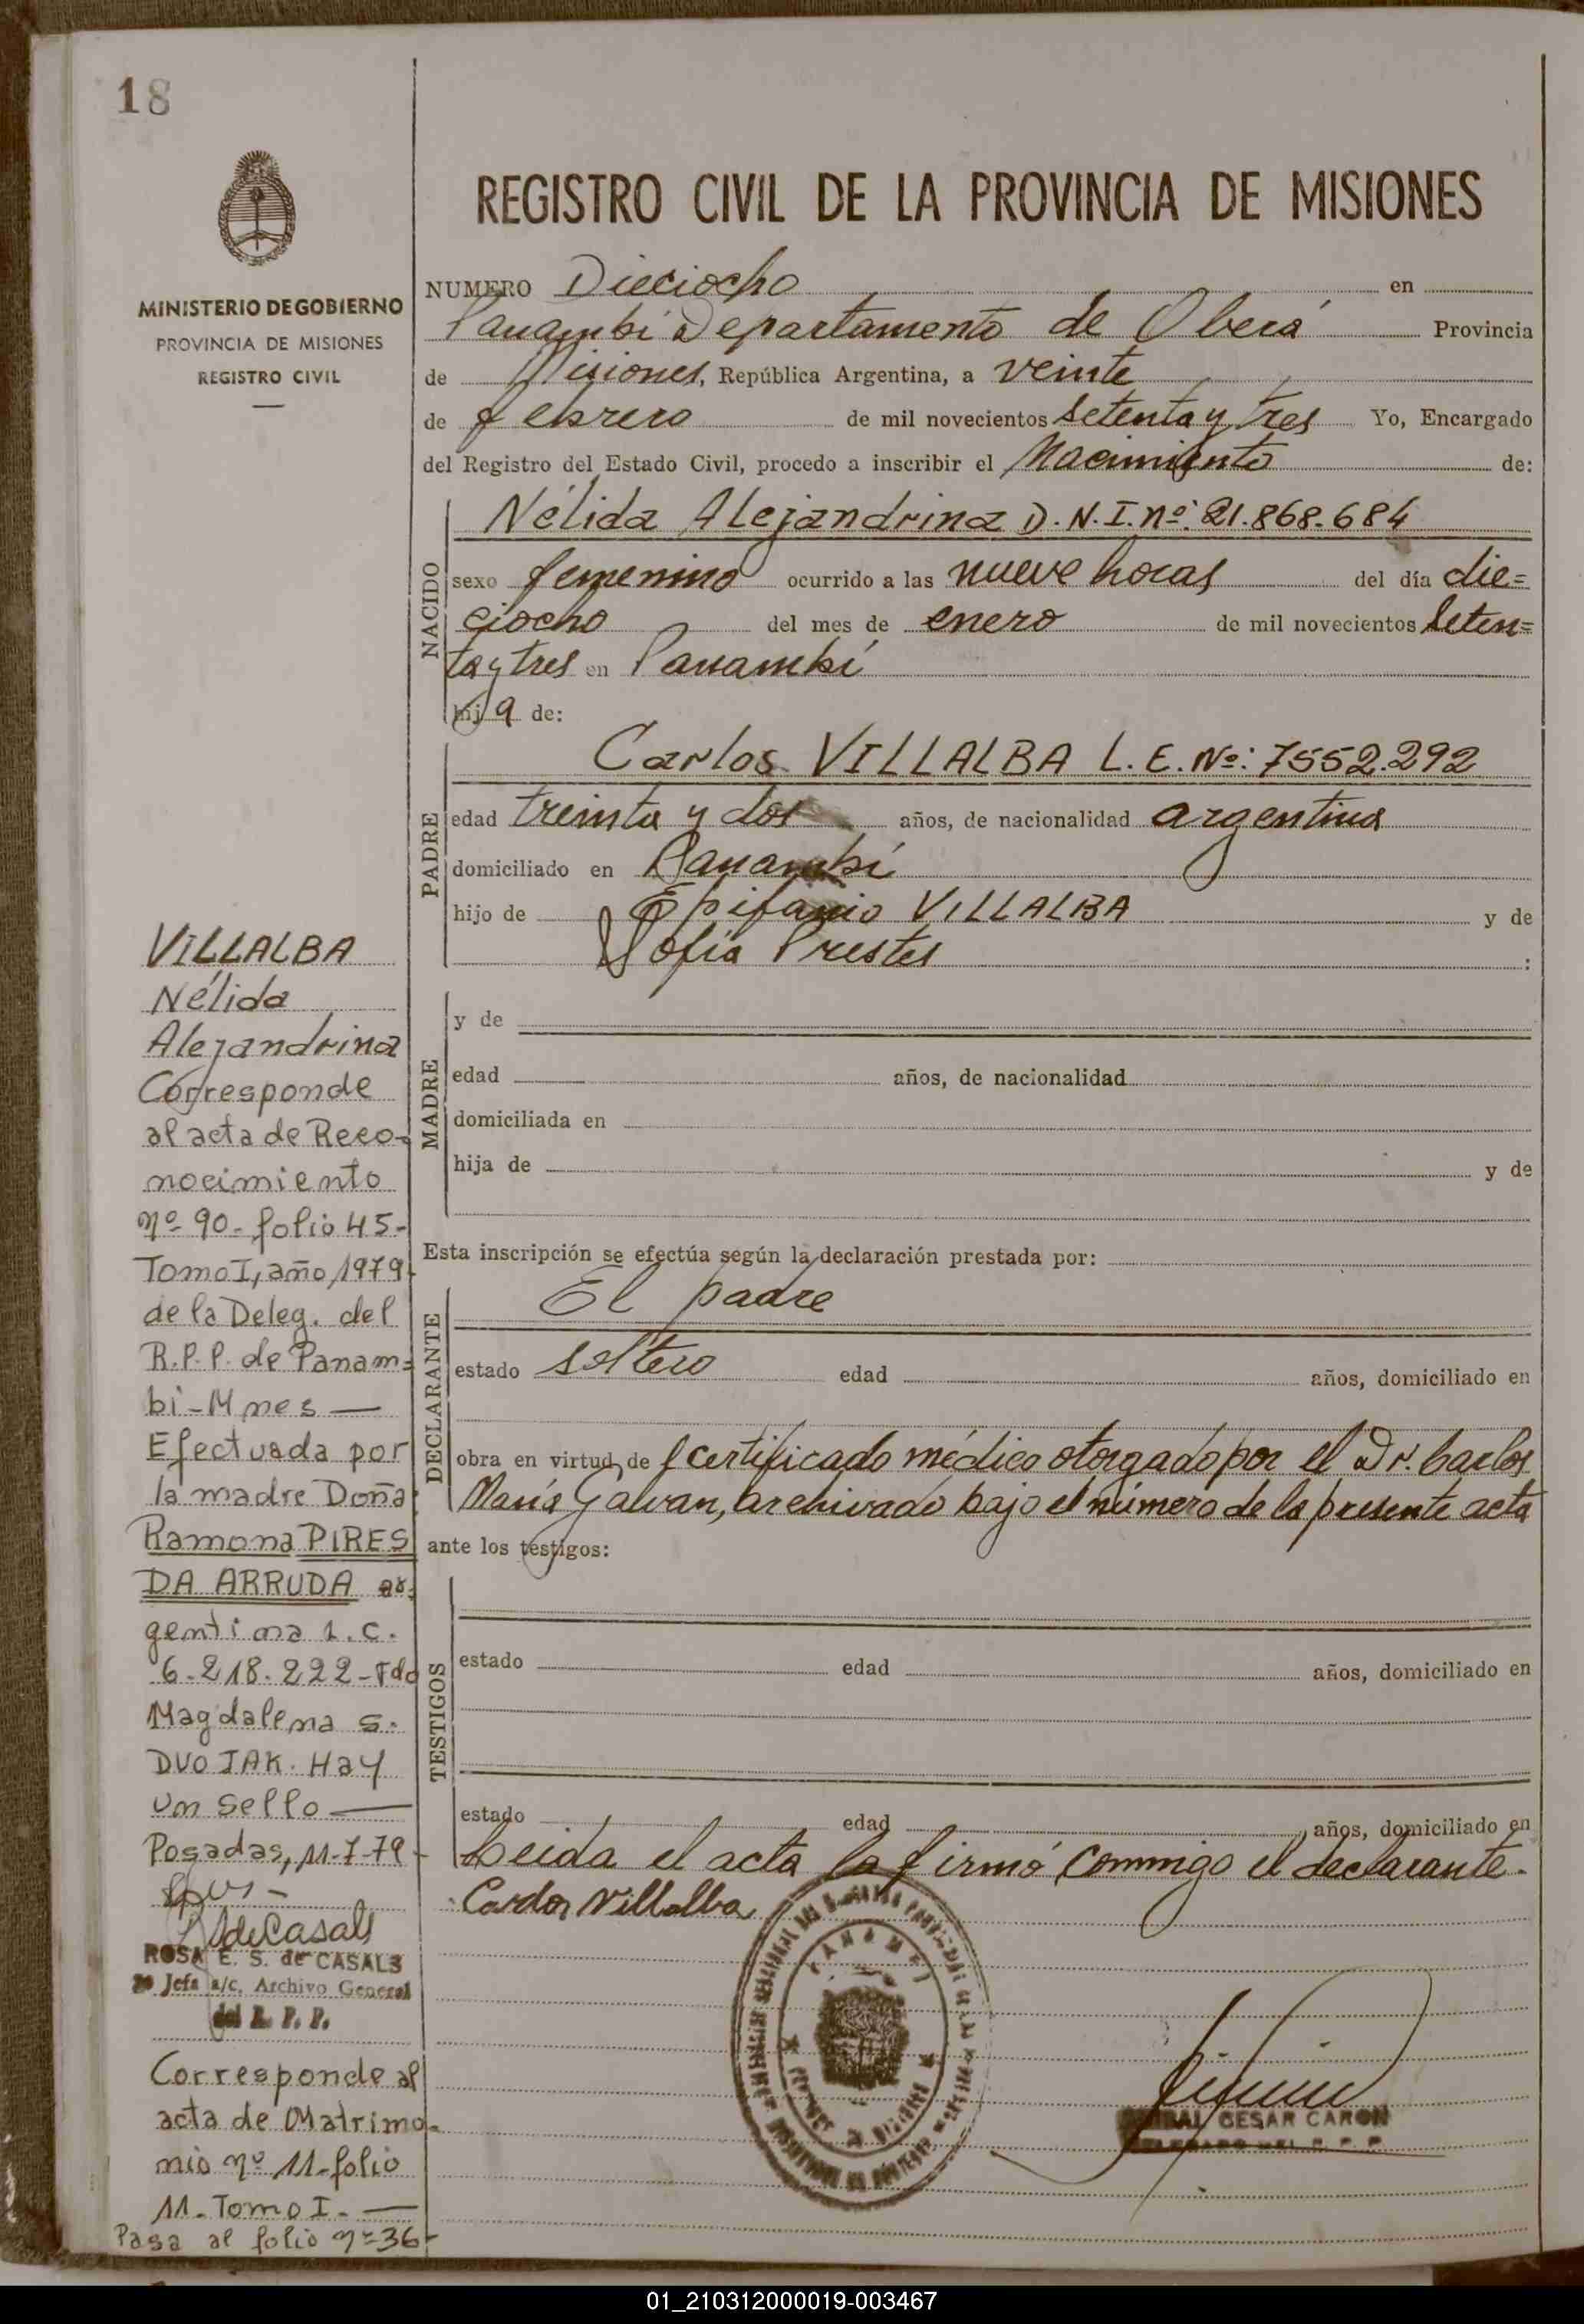 18
MINISTERIO DE GOBIERNO
PROVINCIA DE MISIONES
REGISTRO CIVIL
REGISTRO CIVIL DE LA PROVINCIA DE MISIONES
NUMERO Dieciocho en
Panambí Departamento de Oberá Provincia
de Misiones, República Argentina, a veinte
de febrero de mil novecientos setenta y tres Yo, Encargado
del Registro del Estado Civil, procedo a inscribir el Nacimiento de:
NACIDO
Nélida Alejandrina D.N.I. nº: 21.868.684
sexo femenino ocurrido a las nueve horas del día die=
ciocho del mes de enero de mil novecientos seten=
ta y tres en Panambí
hija de:
PADRE
Carlos VILLALBA L.E. Nº: 7552.292
edad treinta y dos años, de nacionalidad argentina
domiciliado en Panambí
hijo de Epifanio VILLALBA y de
Sofía Prestes :
MADRE
y de
edad años, de nacionalidad
domiciliada en
hija de y de
Esta inscripción se efectúa según la declaración prestada por:
DECLARANTE
El padre
estado soltero edad años, domiciliado en
obra en virtud de certificado médico otorgado por el Dr. Carlos
María Galvan, archivado bajo el número de la presente acta
ante los testigos:
TESTIGOS
estado edad años, domiciliado en
estado edad años, domiciliado en
Leida el acta la firmó conmigo el declarante.
Carlos Villalba
PANAMBI
CESAR CARON
VILLALBA
Nélida
Alejandrina
Corresponde
al acta de Reco-
nocimiento
nº 90-folio 45-
Tomo I, año 1979
de la Deleg. del
R.P.P. de Panam=
bi-Mnes —
Efectuada por
la madre Doña:
Ramona PIRES
DA ARRUDA ar=
gentina L.C.
6-218-222-Fdo
Magdalena S.
DVOJAK. Hay
un sello —
Posadas, 11-7-79-
ROSA E. S. de CASALS
Jefa a/c. Archivo General
del R. P. P.
Corresponde al
acta de Matrimo-
nio nº 11-folio
11-Tomo I. —
Pasa al folio nº 36-
01_210312000019-003467